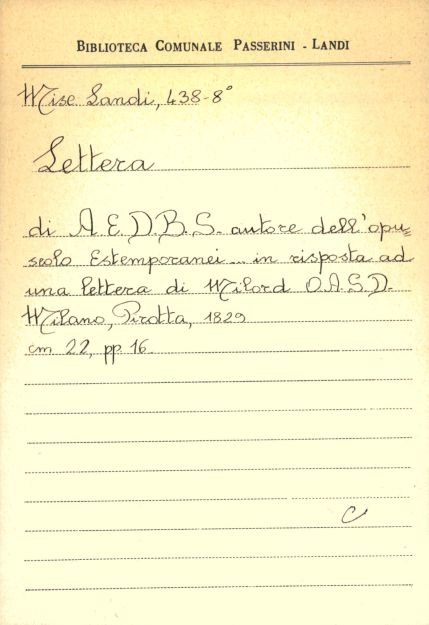 BIBLIOTECA COMUNALE PASSERINI - LANDI
Misc Landi, 438-8°
Lettera
di A.E.D.B.S. autore dell'opu=
scolo Estemporanei... in risposta ad
una lettera di Milord O.A.S.D.
Milano, Pirotta, 1829
cm 22, pp 16.
C